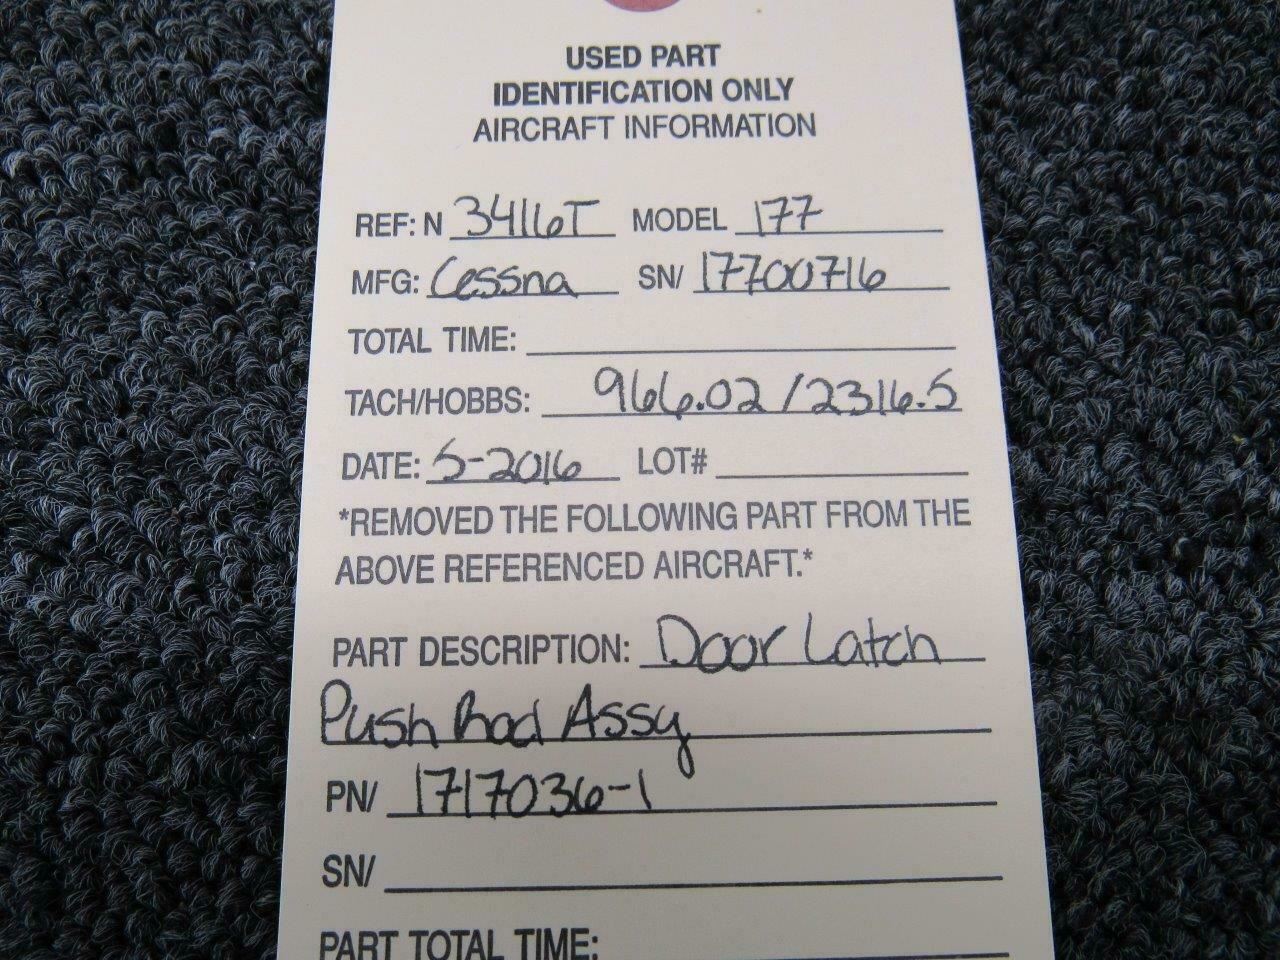 USED PART
IDENTIFICATION ONLY
AIRCRAFT INFORMATION
REF: N 3416T MODEL 177
MFG: Cessna SN/ 17700716
TOTAL TIME:
TACH/HOBBS: 966.02/2316.5
DATE: 5-2016 LOT#
*REMOVED THE FOLLOWING PART FROM THE
ABOVE REFERENCED AIRCRAFT.*
PART DESCRIPTION: Door Latch
Push Rod Assy
PN/ 1717036-1
SN/
PART TOTAL TIME: